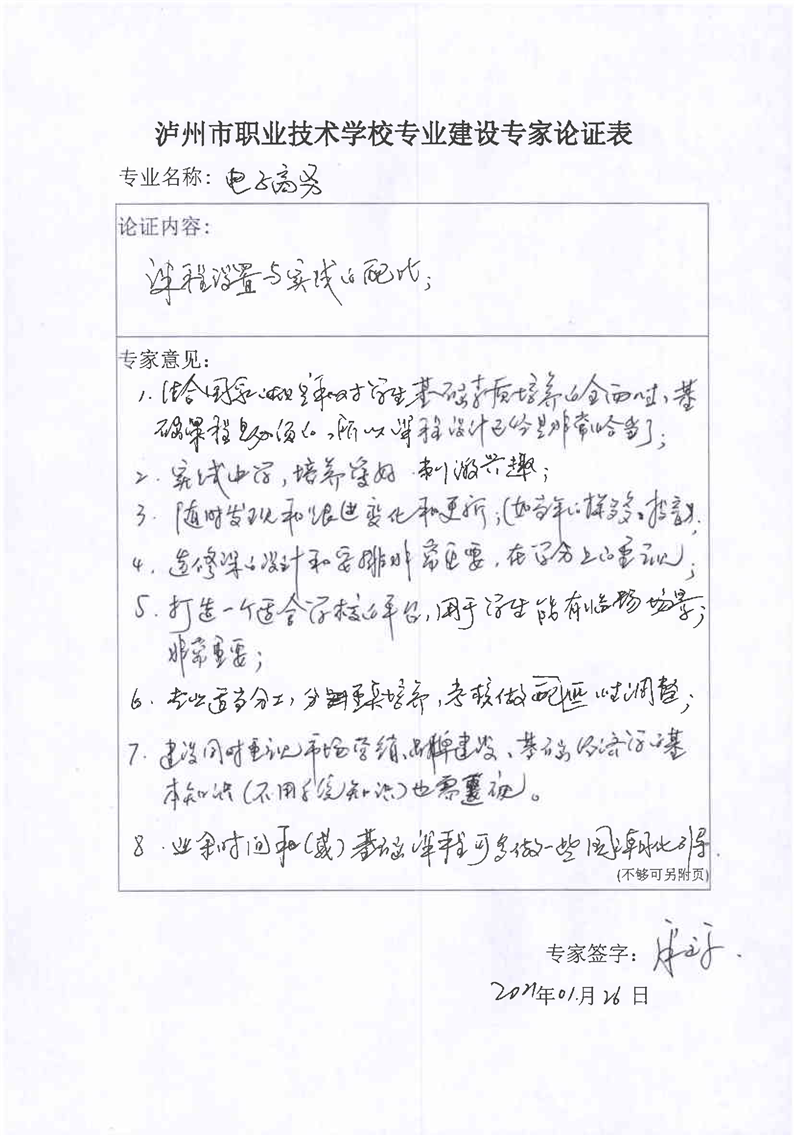 泸州市职业技术学校专业建设专家论证表
专业名称：电子商务
论证内容：
课程设置与实践的配比；
专家意见：
1. 结合国家和对学生基础素质培养的全面性、基
础课程是必须的，所以课程设计已经是非常恰当了；
2. 实践中学，培养爱好 刺激兴趣；
3. 随时发现和跟进变化和更新；(如当年的拼多多、抖音)
4. 选修课的设计和安排非常重要，在学分上的重视；
5. 打造一个适合学校的平台，用于学生能有临场场景；
非常重要；
6. 专业适当分工，分类重点培养，考核做匹配性调整；
7. 建设同时重视市场营销、品牌建设、基础经济学的基
本知识（不用系统知识）也需重视。
8. 业余时间和（或）基础课程可多做一些国潮化引导.
(不够可另附页)
专家签字：
2021年01月26日